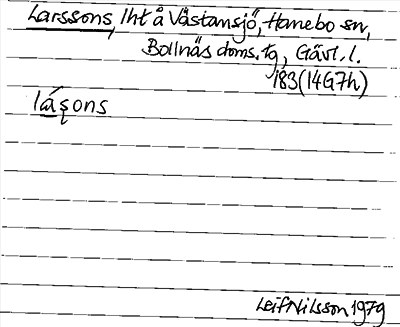 Larssons, lht å Västansjö, Hanebo sn,
Bollnäs doms. tg, Gävl. l.
183 (14G7h)
lás̨ons
Leif Nilsson 1979